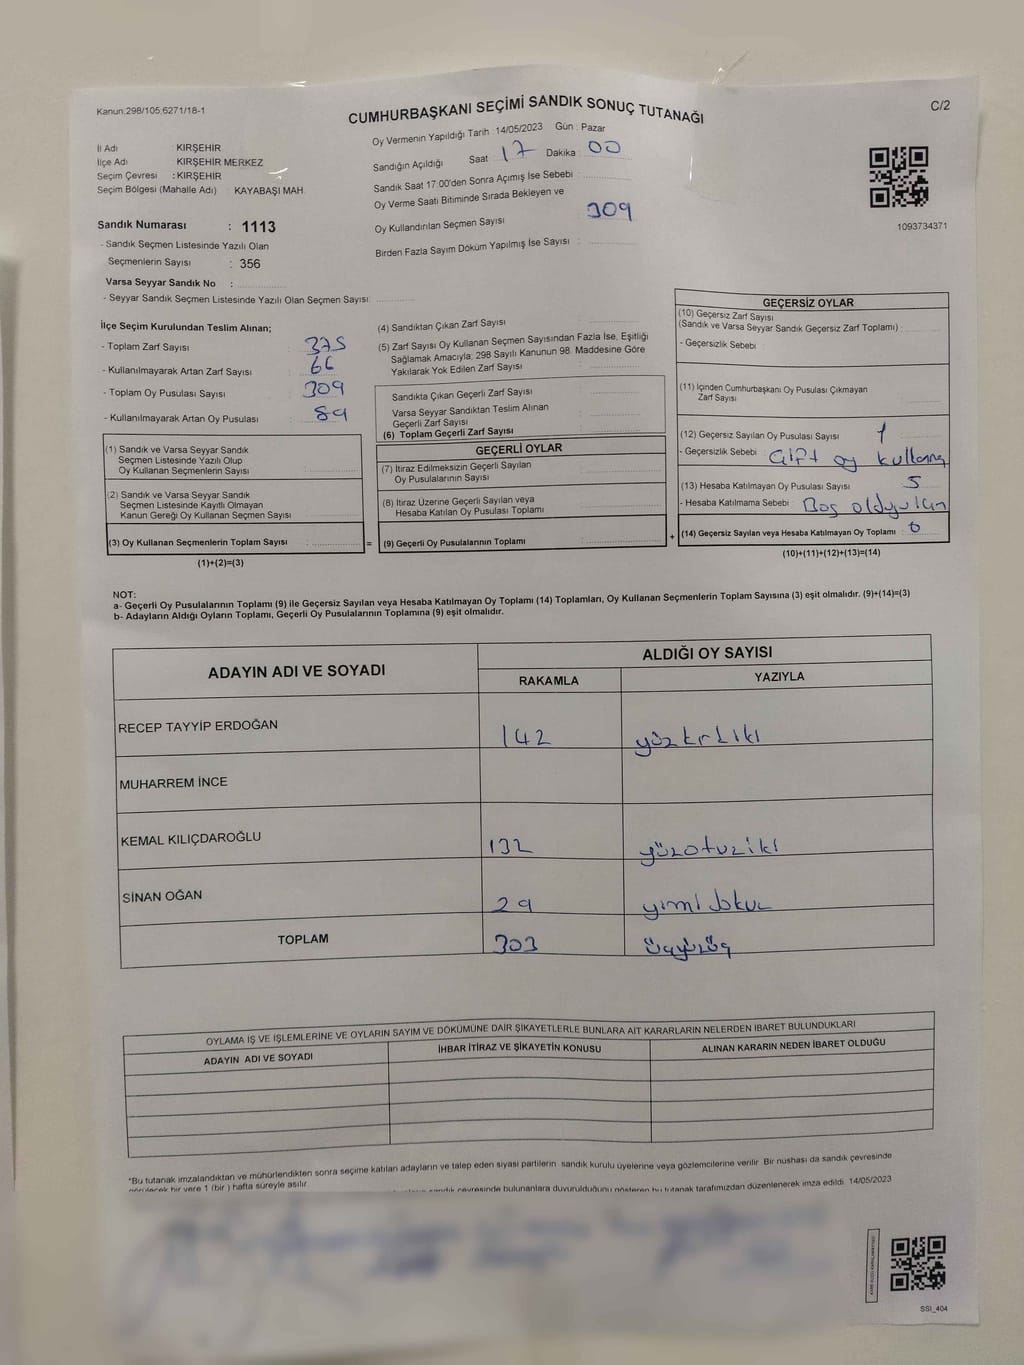 Kanun:298/105;6271/18-1
CUMHURBAŞKANI SEÇİMİ SANDIK SONUÇ TUTANAĞI
C/2
İl Adı : KIRŞEHİR
İlçe Adı KIRŞEHİR MERKEZ
Seçim Çevresi : KIRŞEHİR
Seçim Bölgesi (Mahalle Adı) : KAYABAŞI MAH.
Sandık Numarası : 1113
- Sandık Seçmen Listesinde Yazılı Olan
Seçmenlerin Sayısı : 356
Varsa Seyyar Sandık No :
- Seyyar Sandık Seçmen Listesinde Yazılı Olan Seçmen Sayısı:
Oy Vermenin Yapıldığı Tarih : 14/05/2023 Gün : Pazar
Sandığın Açıldığı Saat 17 Dakika 00
Sandık Saat 17:00'den Sonra Açımış İse Sebebi :
Oy Verme Saati Bitiminde Sırada Bekleyen ve
Oy Kullandırılan Seçmen Sayısı 309
Birden Fazla Sayım Döküm Yapılmış İse Sayısı :
1093734371
İlçe Seçim Kurulundan Teslim Alınan;
- Toplam Zarf Sayısı : 375
- Kullanılmayarak Artan Zarf Sayısı : 66
- Toplam Oy Pusulası Sayısı : 309
- Kullanılmayarak Artan Oy Pusulası : 89
(1) Sandık ve Varsa Seyyar Sandık
Seçmen Listesinde Yazılı Olup
Oy Kullanan Seçmenlerin Sayısı :
(2) Sandık ve Varsa Seyyar Sandık
Seçmen Listesinde Kayıtlı Olmayan
Kanun Gereği Oy Kullanan Seçmen Sayısı :
(3) Oy Kullanan Seçmenlerin Toplam Sayısı :
(1)+(2)=(3)
=
(4) Sandıktan Çıkan Zarf Sayısı :
(5) Zarf Sayısı Oy Kullanan Seçmen Sayısından Fazla İse, Eşitliği
Sağlamak Amacıyla; 298 Sayılı Kanunun 98. Maddesine Göre
Yakılarak Yok Edilen Zarf Sayısı :
Sandıkta Çıkan Geçerli Zarf Sayısı :
Varsa Seyyar Sandıktan Teslim Alınan
Geçerli Zarf Sayısı :
(6) Toplam Geçerli Zarf Sayısı :
GEÇERLİ OYLAR
(7) İtiraz Edilmeksizin Geçerli Sayılan
Oy Pusulalarının Sayısı :
(8) İtiraz Üzerine Geçerli Sayılan veya
Hesaba Katılan Oy Pusulası Toplamı :
(9) Geçerli Oy Pusulalarının Toplamı :
+
GEÇERSİZ OYLAR
(10) Geçersiz Zarf Sayısı
(Sandık ve Varsa Seyyar Sandık Geçersiz Zarf Toplamı) :
- Geçersizlik Sebebi :
(11) İçinden Cumhurbaşkanı Oy Pusulası Çıkmayan
Zarf Sayısı :
(12) Geçersiz Sayılan Oy Pusulası Sayısı : 1
- Geçersizlik Sebebi : Çift oy kullanma
(13) Hesaba Katılmayan Oy Pusulası Sayısı 5
- Hesaba Katılmama Sebebi : Boş olduğu için
(14) Geçersiz Sayılan veya Hesaba Katılmayan Oy Toplamı : 6
(10)+(11)+(12)+(13)=(14)
NOT:
a- Geçerli Oy Pusulalarının Toplamı (9) ile Geçersiz Sayılan veya Hesaba Katılmayan Oy Toplamı (14) Toplamları, Oy Kullanan Seçmenlerin Toplam Sayısına (3) eşit olmalıdır. (9)+(14)=(3)
b- Adayların Aldığı Oyların Toplamı, Geçerli Oy Pusulalarının Toplamına (9) eşit olmalıdır.
ADAYIN ADI VE SOYADI
ALDIĞI OY SAYISI
RAKAMLA YAZIYLA
RECEP TAYYİP ERDOĞAN 142 yüzkrkiki
MUHARREM İNCE
KEMAL KILIÇDAROĞLU 132 yüzotuziki
SİNAN OĞAN 29 yirmi dokuz
TOPLAM 303 üçyüzüç
OYLAMA İŞ VE İŞLEMLERİNE VE OYLARIN SAYIM VE DÖKÜMÜNE DAİR ŞİKAYETLERLE BUNLARA AİT KARARLARIN NELERDEN İBARET BULUNDUKLARI
ADAYIN ADI VE SOYADI İHBAR İTİRAZ VE ŞİKAYETİN KONUSU ALINAN KARARIN NEDEN İBARET OLDUĞU
*Bu tutanak imzalandıktan ve mühürlendikten sonra seçime katılan adayların ve talep eden siyasi partilerin sandık kurulu üyelerine veya gözlemcilerine verilir. Bir nüshası da sandık çevresinde
görülecek bir yere 1 (bir ) hafta süreyle asılır.
sandık çevresinde bulunanlara duyurulduğunu gösteren bu tutanak tarafımızdan düzenlenerek imza edildi. 14/05/2023
SSI_404